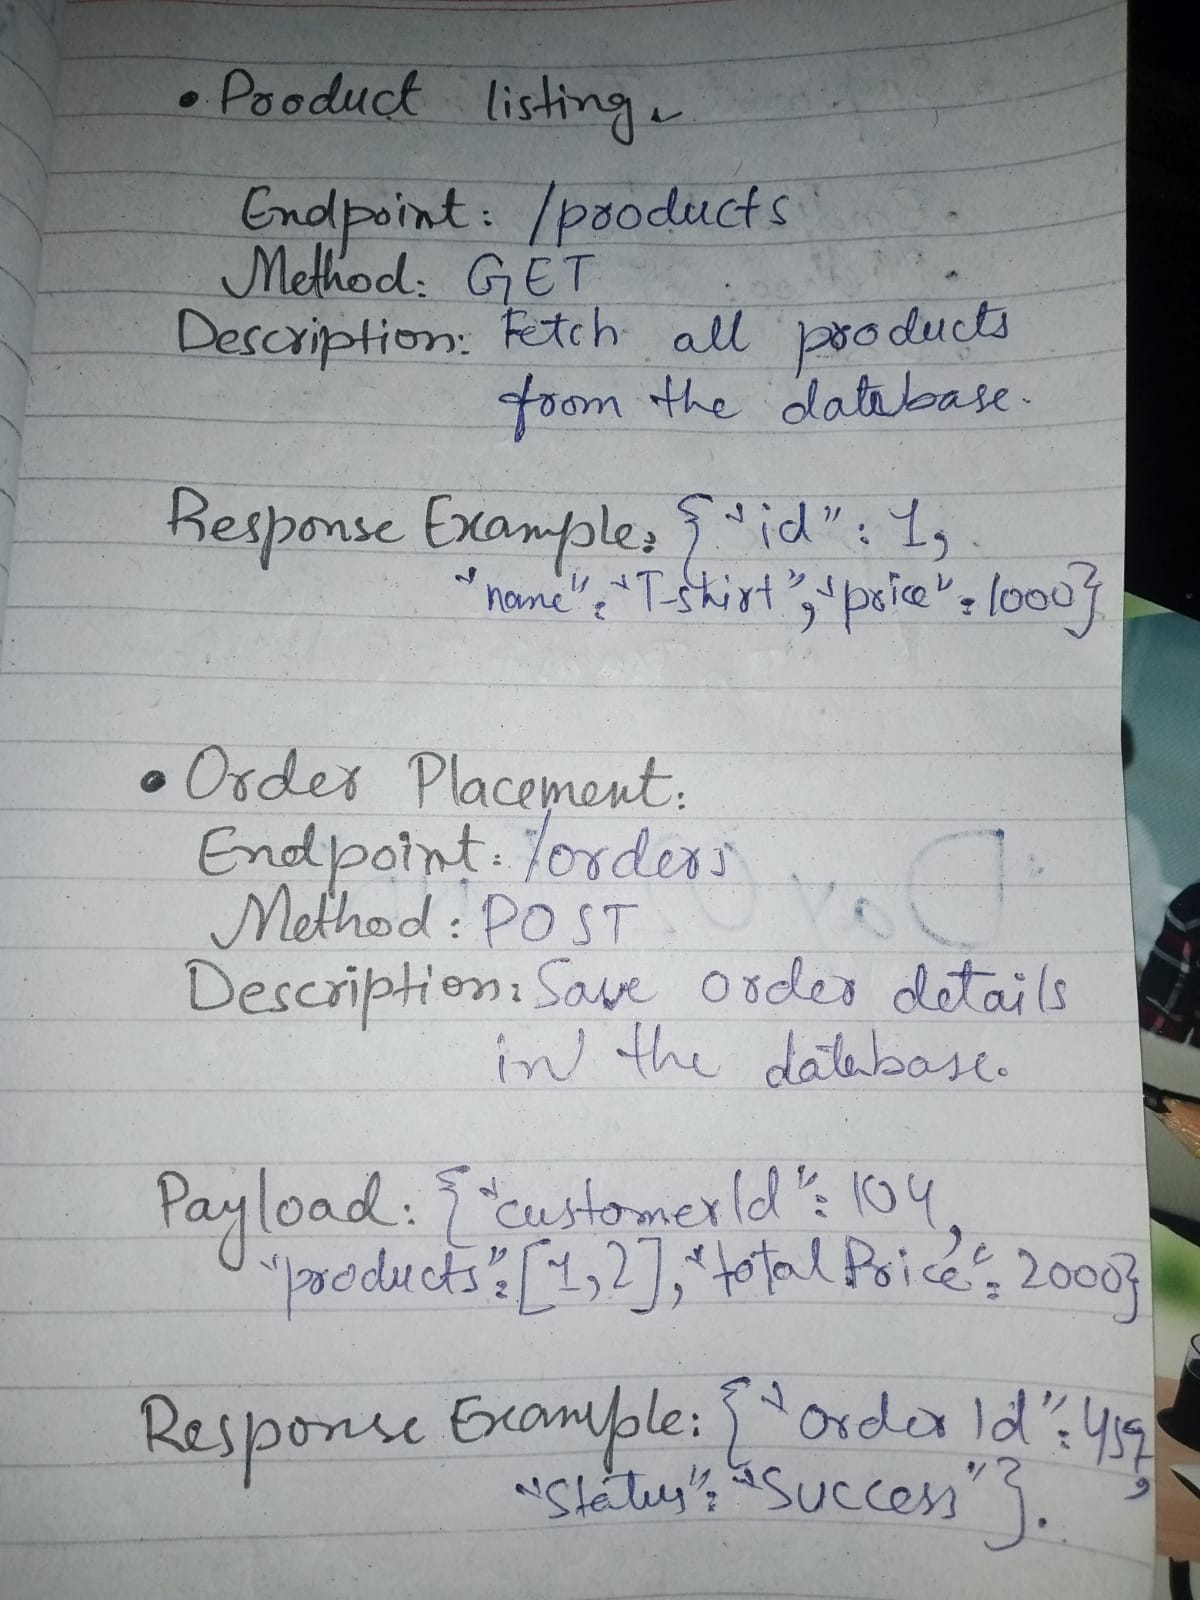 • Product listing
Endpoint: /products
Method: GET
Description: Fetch all products
from the database.
Response Example: {"id": 1,
"name": "T-shirt", "price": 1000}
• Order Placement:
Endpoint: /orders
Method: POST
Description: Save order details
in the database.
Payload: {"customerId": 104,
"products": [1,2], "totalPrice": 2000}
Response Example: {"orderId":
"Status": "Success"}.